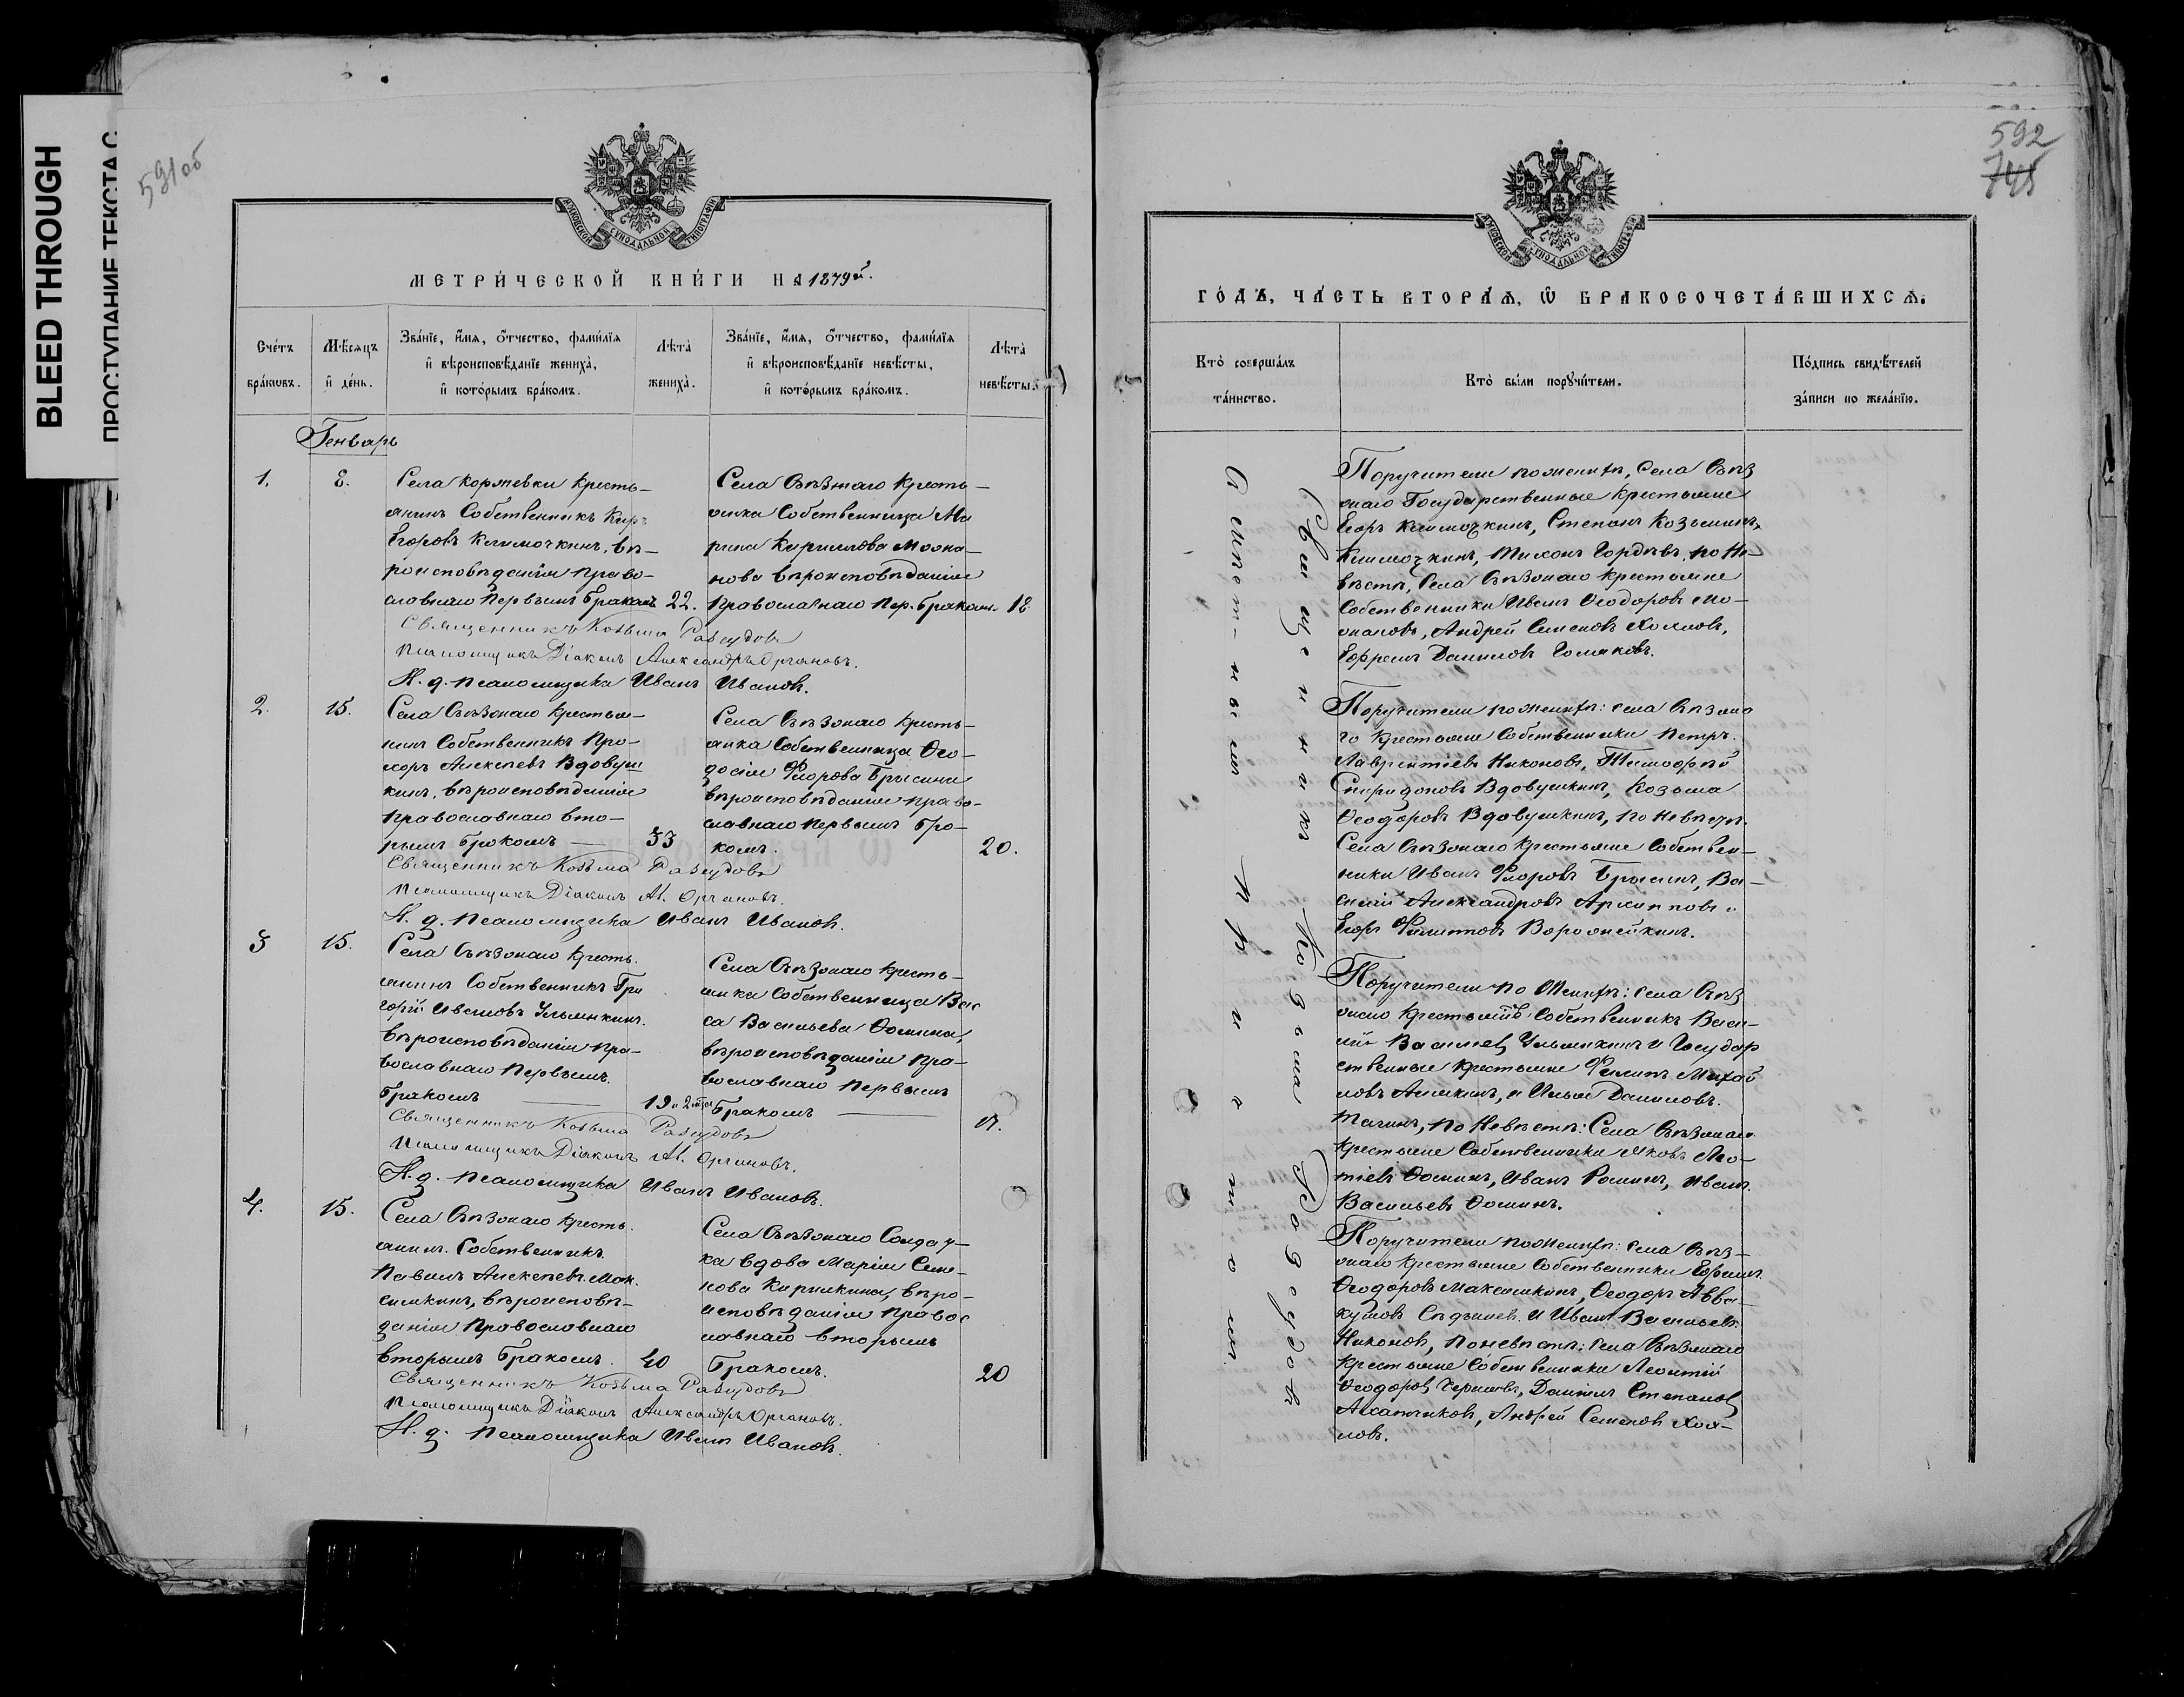 BLEED THROUGH
ПРОСТУПАНИЕ ТЕКСТА С
591об
МОСКОВСКОЙ СѴНОДАЛЬНОЙ ТИПОГРАФІИ
МЕТРИ́ЧЕСКОЙ КНИ́ГИ НА 1879й.
Сче́тъ бра́кѡвъ.
Мѣ́сяцъ и҆ де́нь.
Зва́нїе, и҆́мѧ, ѻ҆́тчество, фами́лїѧ и҆ вѣроисповѣ́данїе жениха̀, и҆ кото́рымъ бра́комъ.
Лѣ́та жениха̀.
Зва́нїе, и҆́мѧ, ѻ҆́тчество, фами́лїѧ и҆ вѣроисповѣ́данїе невѣ́сты, и҆ кото́рымъ бра́комъ.
Лѣ́та невѣ́сты.
Генварь
1.
8.
Села Коржевки кресть-
янинъ Собственникъ
Егоровъ Климочкинъ, вѣ-
роисповѣданія право-
славнаго Первымъ бракомъ
22.
Села Съѣзжаго кресть-
янка Собственница Ма
рина Кириллова
нова вѣроисповѣданія
Православнаго Пер. бракомъ.
18
Священникъ Козьма Разсудовъ
Псаломщикъ Діаконъ Александръ Органовъ.
И. д. псаломщика Иванъ Ивановъ.
2.
15.
Села Съѣзжаго крестья-
нинъ Собственникъ Про-
хоръ Алексѣевъ Вдовуш
кинъ, вѣроисповѣданія
Православнаго вто-
рымъ бракомъ
33
Села Съѣзжаго кресть-
янка Собственница Ѳео-
досія Флорова Брысина
вѣроисповѣданія право-
славнаго Первымъ бра-
комъ.
20.
Священникъ Козьма Разсудовъ
Псаломщикъ Діаконъ Ал. Органовъ.
И. д. псаломщика Иванъ Ивановъ.
3
15.
Села Съѣзжаго кресть.
янинъ Собственникъ Гри
горій Ивановъ Ульянкинъ.
вѣроисповѣданія пра-
вославнаго Первымъ.
бракомъ
19 и 2
Села Съѣзжаго кресть-
янка Собственница Вас
са Васильева Ѳомина,
вѣроисповѣданія пра-
вославнаго Первымъ
бракомъ
17.
Священникъ Козьма Разсудовъ
Псаломщикъ Діаконъ Ал. Органовъ.
И. д. псаломщика Иванъ Ивановъ.
4.
15.
Села Съѣзжаго кресть.
янинъ. Собственникъ.
Павелъ Алексѣевъ Мак.
симкинъ, вѣроисповѣ-
данія Православнаго
вторымъ бракомъ.
40
Села Съѣзжаго Солдат-
ка вдова Марія Семе-
нова Кирилкина, вѣро-
исповѣданія Правос
лавнаго вторымъ
бракомъ.
20
Священникъ Козьма Разсудовъ
Псаломщикъ Діаконъ Александръ Органовъ.
И. д. псаломщика Иванъ Ивановъ.
592
745
МОСКОВСКОЙ СѴНОДАЛЬНОЙ ТИПОГРАФІИ
ГО́ДЪ, ЧА́СТЬ ВТОРА́Ѧ, Ѽ БРАКОСОЧЕТА́ВШИХСѦ.
Кто̀ соверша́лъ та́инство.
Кто̀ бы́ли порꙋчи́тели.
По́дпись свидѣ́телей за́писи по жела́нїю.
Священникъ Козьма Разсудовъ
причтомъ
Поручители по женихѣ, Села Съѣз
жаго Государственные крестьяне
Егоръ Климочкинъ, Степанъ Козьминъ,
Климочкинъ, Тихонъ Гордѣевъ, по не
вѣстѣ, Села Съѣзжаго крестьяне
Собственники Иванъ Ѳеодоровъ
Андрей Семеновъ Хохловъ,
Ефремъ Даниловъ
Поручители по женихѣ: села Съѣзжа
го крестьяне Собственники Петръ.
Лаврентіевъ Никоновъ, Тимофей
Спиридоновъ Вдовушкинъ, Козьма
Ѳеодоровъ Вдовушкинъ, по невѣстѣ.
Села Съѣзжаго крестьяне Собствен-
ники Иванъ Флоровъ Брысинъ, Ва-
силій Александровъ Архиповъ и
Егоръ Филиповъ Воронейкинъ.
Поручители по женихѣ: села Съѣз
жаго крестьяне Собственникъ Васи-
лій Васильевъ Ульянкинъ и Государ
ственные крестьяне Филипъ Михай
ловъ Алешкинъ, и Илья Даниловъ.
по невѣстѣ: Села Съѣзжаго.
крестьяне Собственники Яковъ Лео-
тіевъ Ѳоминъ, Иванъ Ѳоминъ, Иванъ.
Васильевъ Ѳоминъ.
Поручители по женихѣ: села Съѣз-
жаго крестьяне Собственники Ефимъ.
Ѳеодоровъ Максимкинъ, Ѳеодоръ Авва-
кумовъ и Иванъ Васильевъ
Никоновъ, по невѣстѣ: села Съѣзжаго
крестьяне Собственники Леонтій
Ѳеодоровъ Даніилъ Степановъ
Андрей Семеновъ Хох-
ловъ.